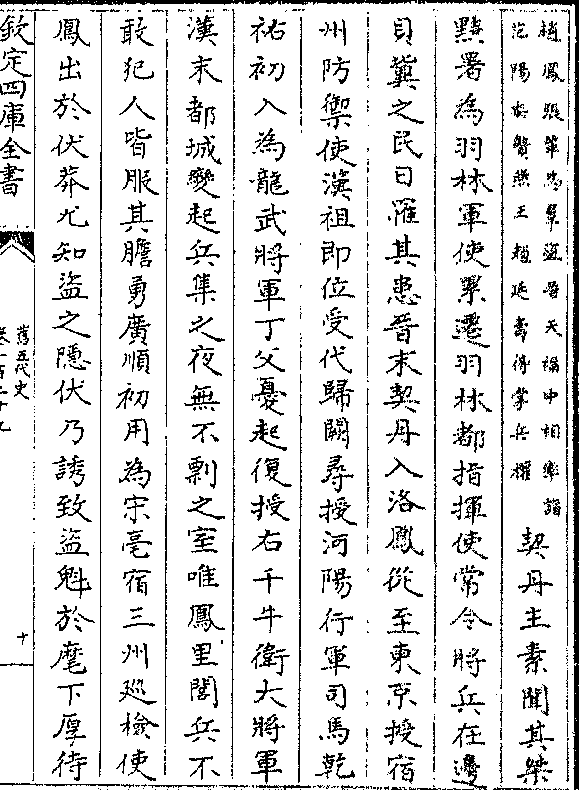 趙鳳㫁第為羣盜晉天福中相率詣
范陽㫄賛燕王趙延壽得掌兵權
契丹主素聞其桀
黠署為羽林軍使累遷羽林都指揮使常令將兵在邊
貝冀之民日罹其患晉末契丹入洛鳳從至東京授宿
州防禦使漢祖即位受代歸闕尋授河陽行軍司馬乾
祐初入為龍武將軍丁父憂起復授右千牛衛大將軍
漢末都城變起兵集之夜無不剽之室唯鳳里閭兵不
敢犯人皆服其膽勇廣順初用為宋亳宿三州廵檢使
鳳出於伏莽尤知盜之隱伏乃誘致盜魁於麾下厚待
欽定四庫全書
舊五代史
卷一百二十九
十